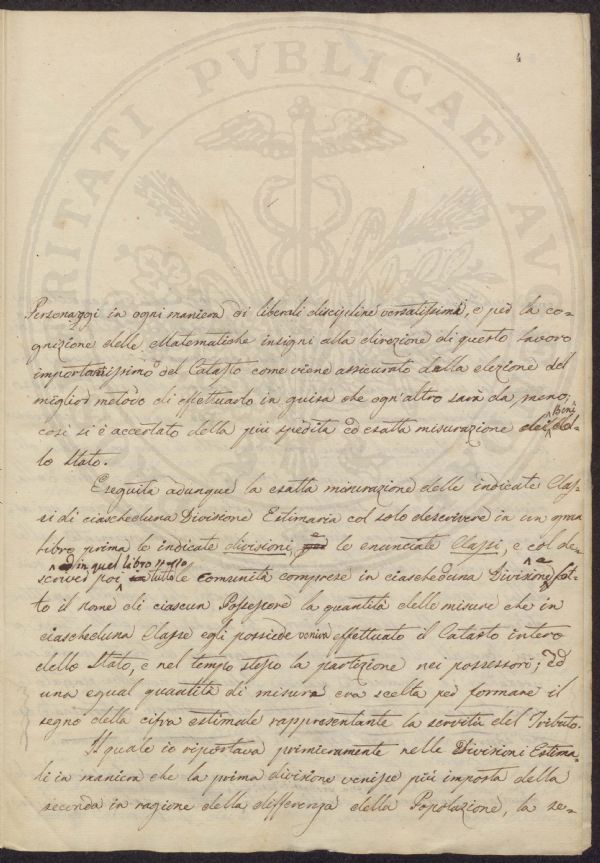 4
VERITATI PVBLICAE AVC
Personaggi in ogni maniera di liberali discipline versatissimi, e per la co=
gnizione delle Matematiche insigni alla direzione di questo lavoro
importantissimo del Catasto come viene assicurato dalla elezione del
miglior metodo di effettuarlo in guisa che ogn'altro sarà da meno;
così si è accertato della più spedita ed esatta misurazione dei Beni del=
lo Stato.
Eseguita adunque la esatta misurazione delle indicate Clas=
si di ciascheduna Divisione Estimaria col solo descrivere in un gran
libro prima le indicate divisioni, e le enunciate Classi, e col de=
scrivere poi ed in quel libro stesso tutte le comunità comprese in ciascheduna Divisione, e sot=
to il nome di ciascun Possessore la quantità delle misure che in
ciascheduna Classe egli possiede veniva effettuato il Catasto intero
dello Stato, e nel tempo stesso la partizione nei possessori; ed
una egual quantità di misura era scelta per formare il
segno della cifra estimale rappresentante la servitù del Tributo.
Il quale io riportava primieramente nelle Divisioni Estima=
li in maniera che la prima divisione venisse più imposta della
seconda in ragione della differenza della Popolazione, la se=